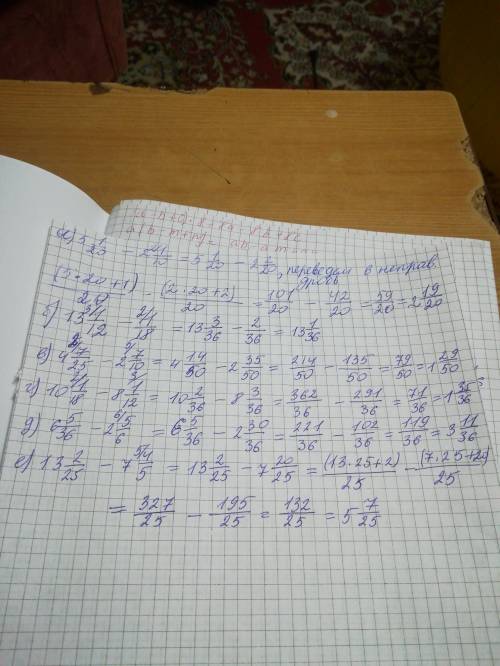 а) 5 1/20 − 2 1/10 = 5 1/20 − 2 2/20, переведём в неправ. дробь
(5·20+1)/20 − (2·20+2)/20 = 101/20 − 42/20 = 59/20 = 2 19/20
б) 13 1/12 − 1/18 = 13 3/36 − 2/36 = 13 1/36
в) 4 7/25 − 2 7/10 = 4 14/50 − 2 35/50 = 214/50 − 135/50 = 79/50 = 1 29/50
г) 10 1/18 − 8 1/12 = 10 2/36 − 8 3/36 = 362/36 − 291/36 = 71/36 = 1 35/36
д) 6 5/36 − 2 5/6 = 6 5/36 − 2 30/36 = 221/36 − 102/36 = 119/36 = 3 11/36
е) 13 2/25 − 7 4/5 = 13 2/25 − 7 20/25 = (13·25+2)/25 − (7·25+20)/25
= 327/25 − 195/25 = 132/25 = 5 7/25